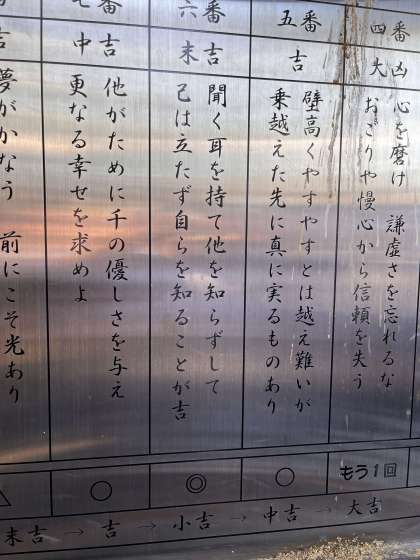 四番
大凶
心を磨け　謙虚さを忘れるな
おごりや慢心から信頼を失う
もう1回
五番
吉
壁高くやすやすとは越え難いが
乗越えた先に真に実るものあり
○
六番
末吉
聞く耳を持て他を知らずして
己は立たず自らを知ることが吉
◎
七番
中吉
他がために千の優しさを与え
更なる幸せを求めよ
○
吉
夢がかなう　前にこそ光あり
△
末吉 → 吉 → 小吉 → 中吉 → 大吉